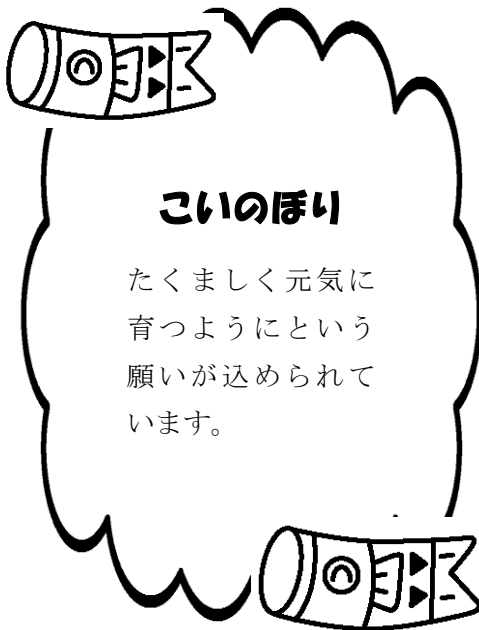 こいのぼり
たくましく元気に
育つようにという
願いが込められて
います。